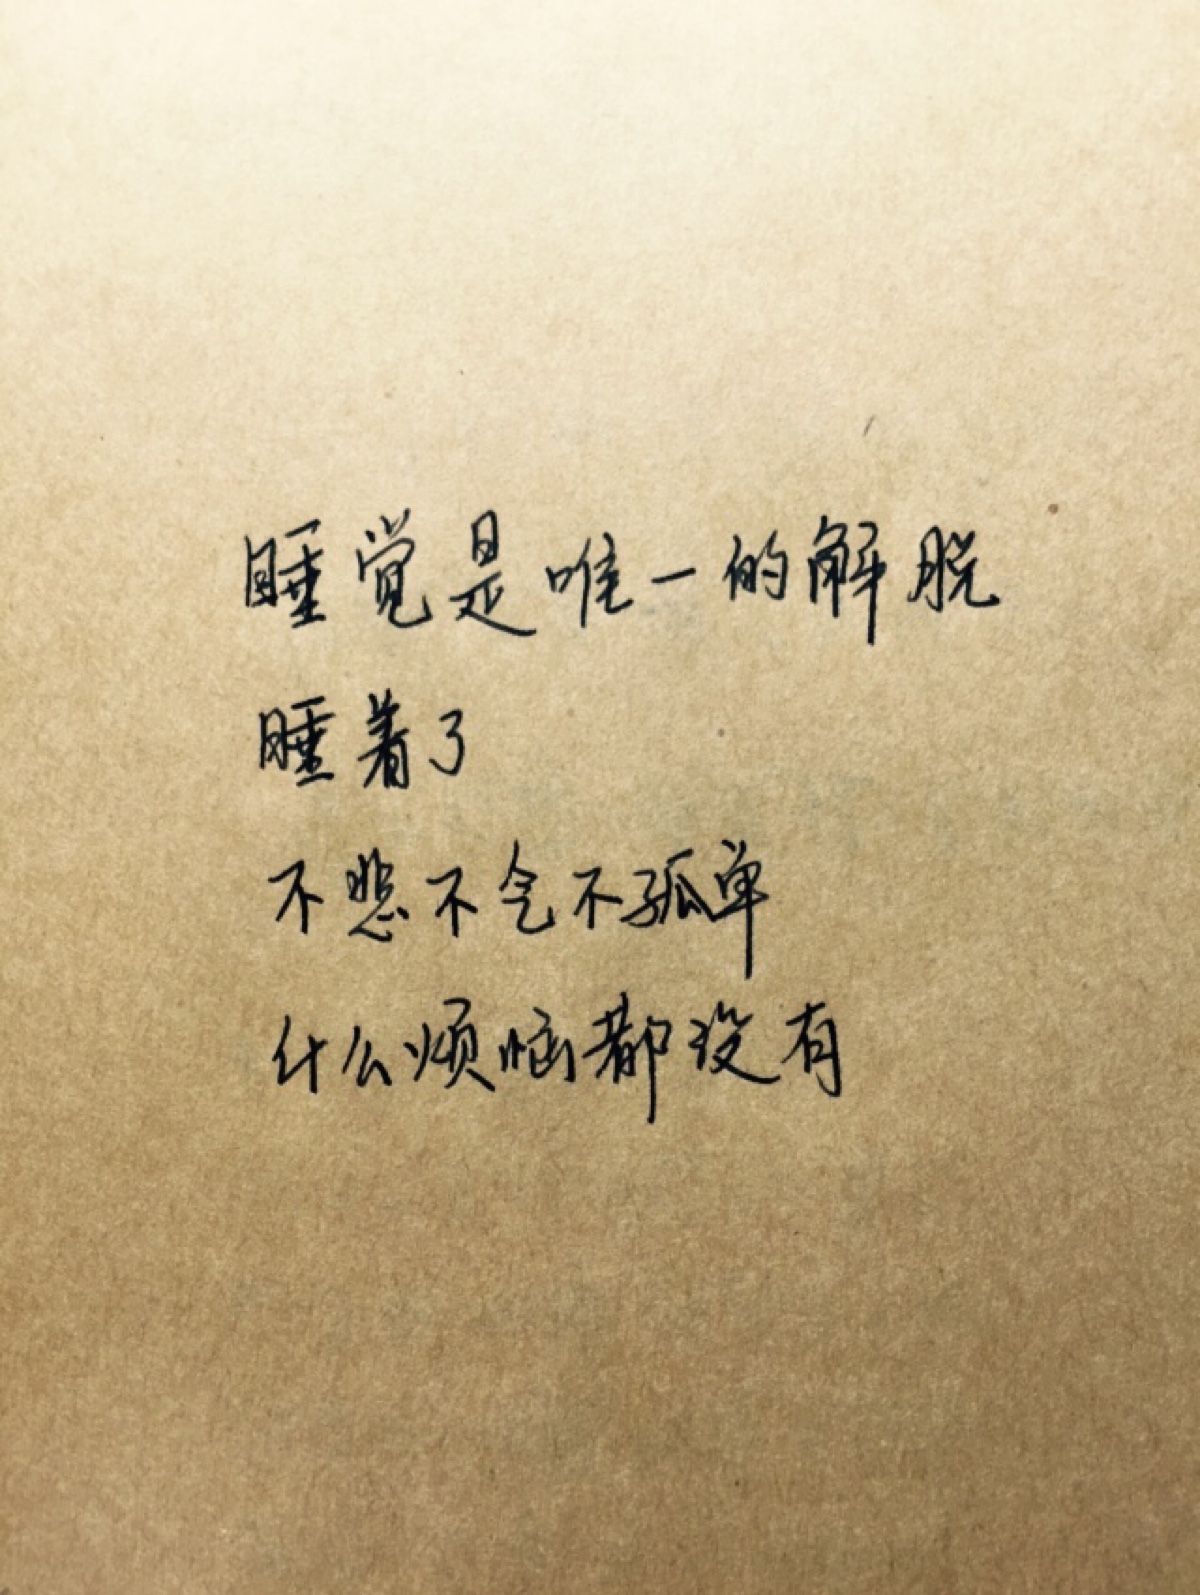 睡觉是唯一的解脱
睡着了
不悲不气不孤单
什么烦恼都没有